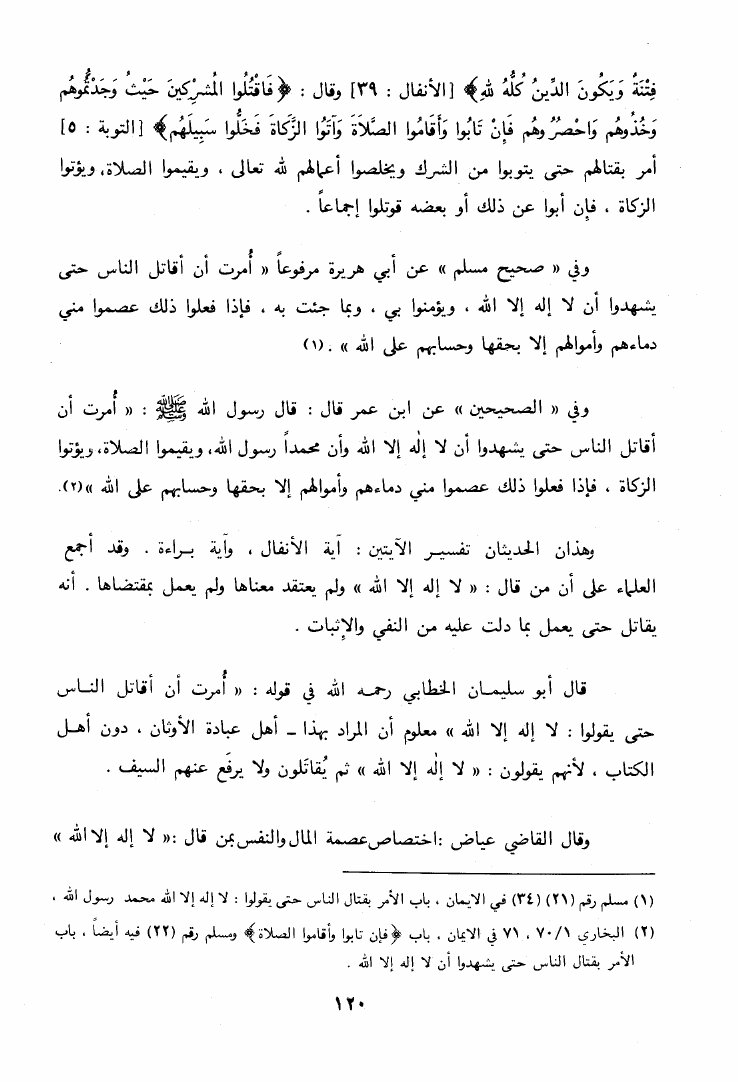 فِتْنَةٌ وَيَكُونَ الدِّينُ كُلُّهُ لِلهِ﴾ [الأنفال : ٣٩] وقال : ﴿فَاقْتُلُوا الْمُشْرِكِينَ حَيْثُ وَجَدْتُمُوهُم
وَخُذُوهُم وَاحْصُرُوهُم فَإِنْ تَابُوا وَأَقَامُوا الصَّلاَةَ وَآتَوُا الزَّكَاةَ فَخَلُّوا سَبِيلَهُم﴾ [التوبة : ٥]
أمر بقتالهم حتى يتوبوا من الشرك ويخلصوا أعمالهم لله تعالى ، ويقيموا الصلاة، ويؤتوا
الزكاة ، فإن أبوا عن ذلك أو بعضه قوتلوا إجماعاً .
وفي « صحيح مسلم » عن أبي هريرة مرفوعاً « أُمرت أن أقاتل الناس حتى
يشهدوا أن لا إله إلا الله ، ويؤمنوا بي ، وبما جئت به ، فإذا فعلوا ذلك عصموا مني
دماءهم وأموالهم إلا بحقها وحسابهم على الله » .(١)
وفي « الصحيحين » عن ابن عمر قال : قال رسول الله ﷺ : « أُمرت أن
أقاتل الناس حتى يشهدوا أن لا إلٰه إلا الله وأن محمداً رسول الله، ويقيموا الصلاة، ويؤتوا
الزكاة ، فإذا فعلوا ذلك عصموا مني دماءهم وأموالهم إلا بحقها وحسابهم على الله »(٢).
وهذان الحديثان تفسير الآيتين : آية الأنفال ، وآية براءة . وقد أجمع
العلماء على أن من قال : « لا إله إلا الله » ولم يعتقد معناها ولم يعمل بمقتضاها . أنه
يقاتل حتى يعمل بما دلت عليه من النفي والإثبات .
قال أبو سليمان الخطابي رحمه الله في قوله : « أُمرت أن أقاتل الناس
حتى يقولوا : لا إله إلا الله » معلوم أن المراد بهذا ـ أهل عبادة الأوثان ، دون أهل
الكتاب ، لأنهم يقولون : « لا إلٰه إلا الله » ثم يُقاتَلون ولا يرفَع عنهم السيف .
وقال القاضي عياض :اختصاص عصمة المال والنفس بمن قال :« لا إله إلا الله »
(١) مسلم رقم (٢١) (٣٤) في الايمان ، باب الأمر بقتال الناس حتى يقولوا : لا إله إلا الله محمد رسول الله ،
(٢) البخاري ٧٠/١ ، ٧١ في الايمان ، باب ﴿فإن تابوا وأقاموا الصلاة﴾ ومسلم رقم (٢٢) فيه أيضاً ، باب
الأمر بقتال الناس حتى يشهدوا أن لا إله إلا الله .
١٢٠